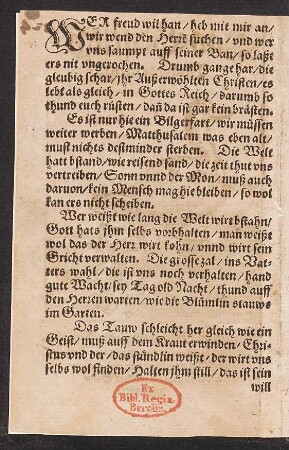 WER freud wil han / heb mit mir an /
wir wend den Herrn suchen / vnd wer
vns saumpt auff seiner Ban / so laßt
ers nit vngerochen. Drumb gange har / die
gleubig schar / jhr Außerwöhlten Christen / es
lebt als gleich / in Gottes Reich / darumb so
thund euch rüsten / dañ da ist gar kein brästen.
Es ist nur hie ein Bilgerfart / wir müssen
weiter werben / Matthusalem was eben alt /
must nichts destminder sterben. Die Welt
hatt bstand / wie reisend sand / die zeit thut vns
vertreiben / Sonn vnnd der Mon / muß auch
daruon / kein Mensch mag hie bleiben / so wol
kan ers nicht scheiben.
Wer weißt wie lang die Welt wirt bstahn /
Gott hats jhm selbs vorbhalten / man weißt
wol das der Herr wirt kohn / vnnd wirt sein
Gricht verwalten. Die grosse zal / ins Vat-
ters wahl / die ist vns noch verhalten / hand
gute Wacht / sey Tag old Nacht / thund auff
den Herren warten / wie die Blümlin stauws
im Garten.
Das Tauw schleicht her gleich wie ein
Geist / muß auff dem Kraut erwinden / Chri-
stus vnd der / das stündlin weißt / der wirt vns
selbs wol finden / Halten jhm still / das ist sein
will
Ex
Bibl. Regia
Berolin.